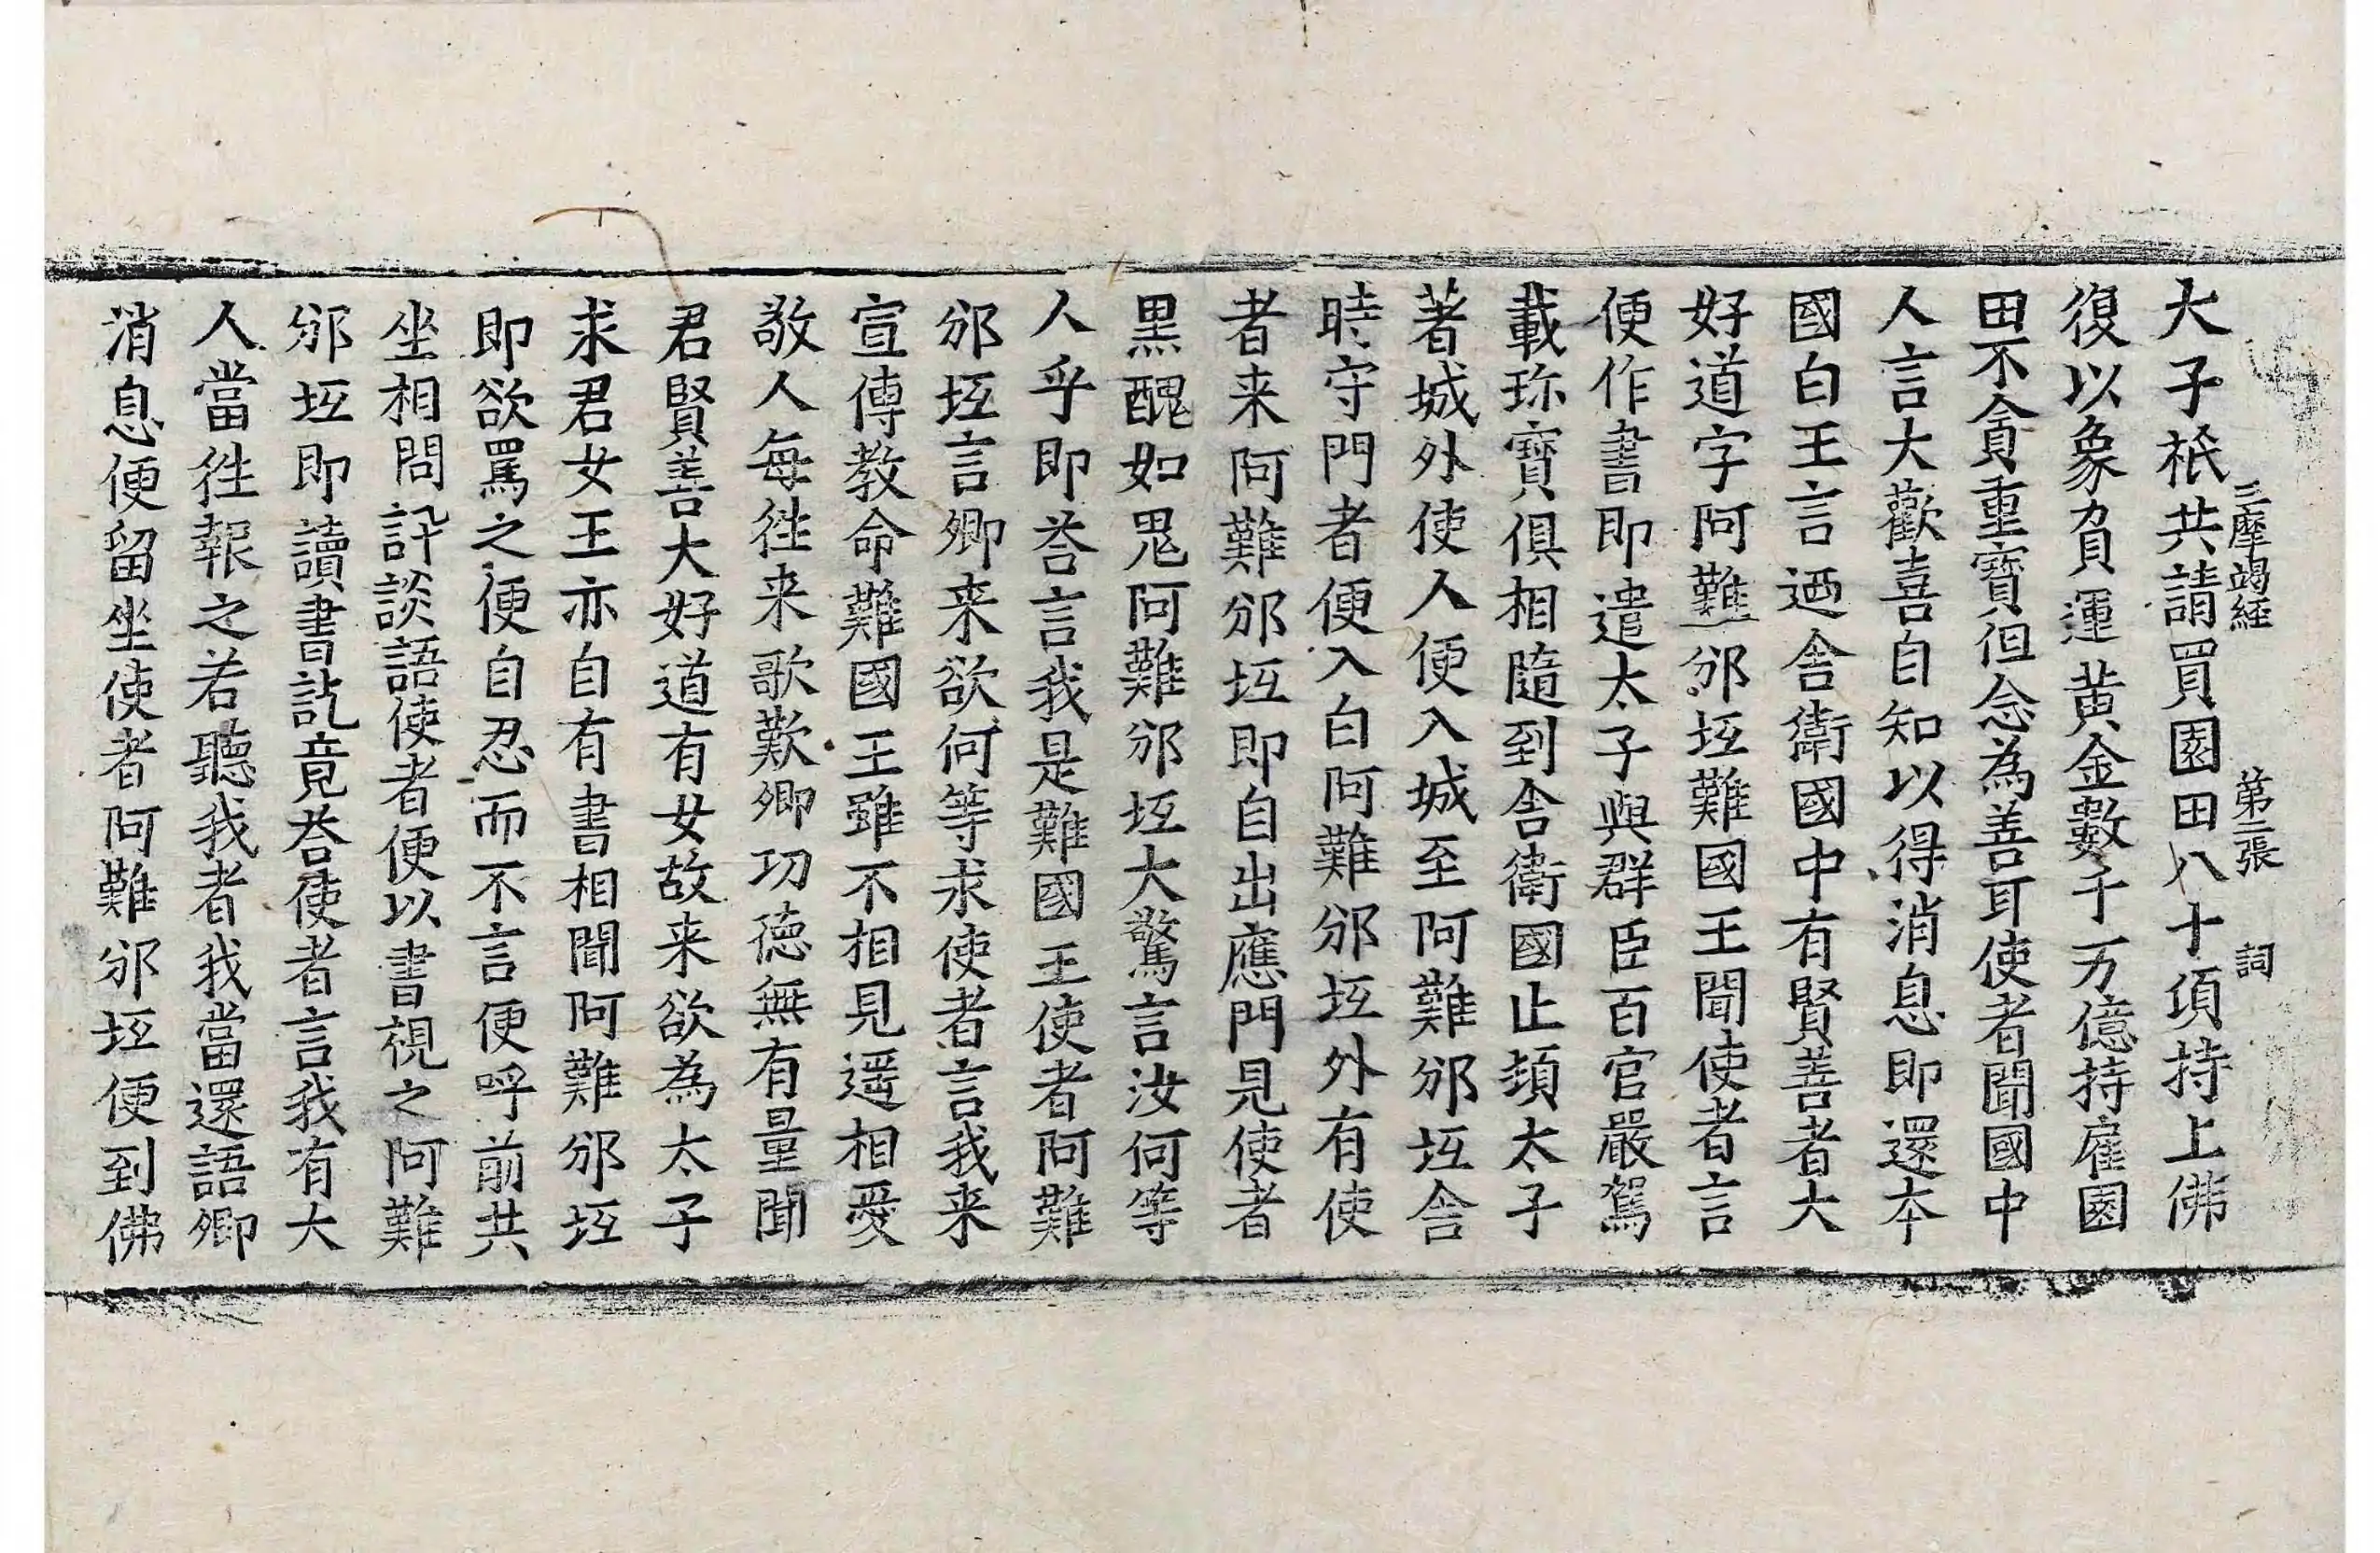 三摩竭經 第二張 詞
大子祇共請買園田八十頃持上佛
復以象負運黄金數千万億持雇園
田不貪重寶但念為善耳使者聞國中
人言大歡喜自知以得消息即還本
國白王言迺舍衛國中有賢善者大
好道字阿難邠坻難國王聞使者言
便作書即遣太子與群臣百官嚴駕
載珎寶俱相隨到舍衛國止頓太子
著城外使人便入城至阿難邠坻舍
時守門者便入白阿難邠坻外有使
者来阿難邠坻即自出應門見使者
黒醜如鬼阿難邠坻大驚言汝何等
人乎即荅言我是難國王使者阿難
邠坻言卿来欲何等求使者言我来
宣傳教命難國王雖不相見遥相愛
敬人每徃来歌歎卿功德無有量聞
君賢善大好道有女故来欲為太子
求君女王亦自有書相聞阿難邠坻
即欲罵之便自忍而不言便呼前共
坐相問訊談語使者便以書視之阿難
邠坻即讀書訖竟荅使者言我有大
人當徃報之若聽我者我當還語卿
消息便留坐使者阿難邠坻便到佛